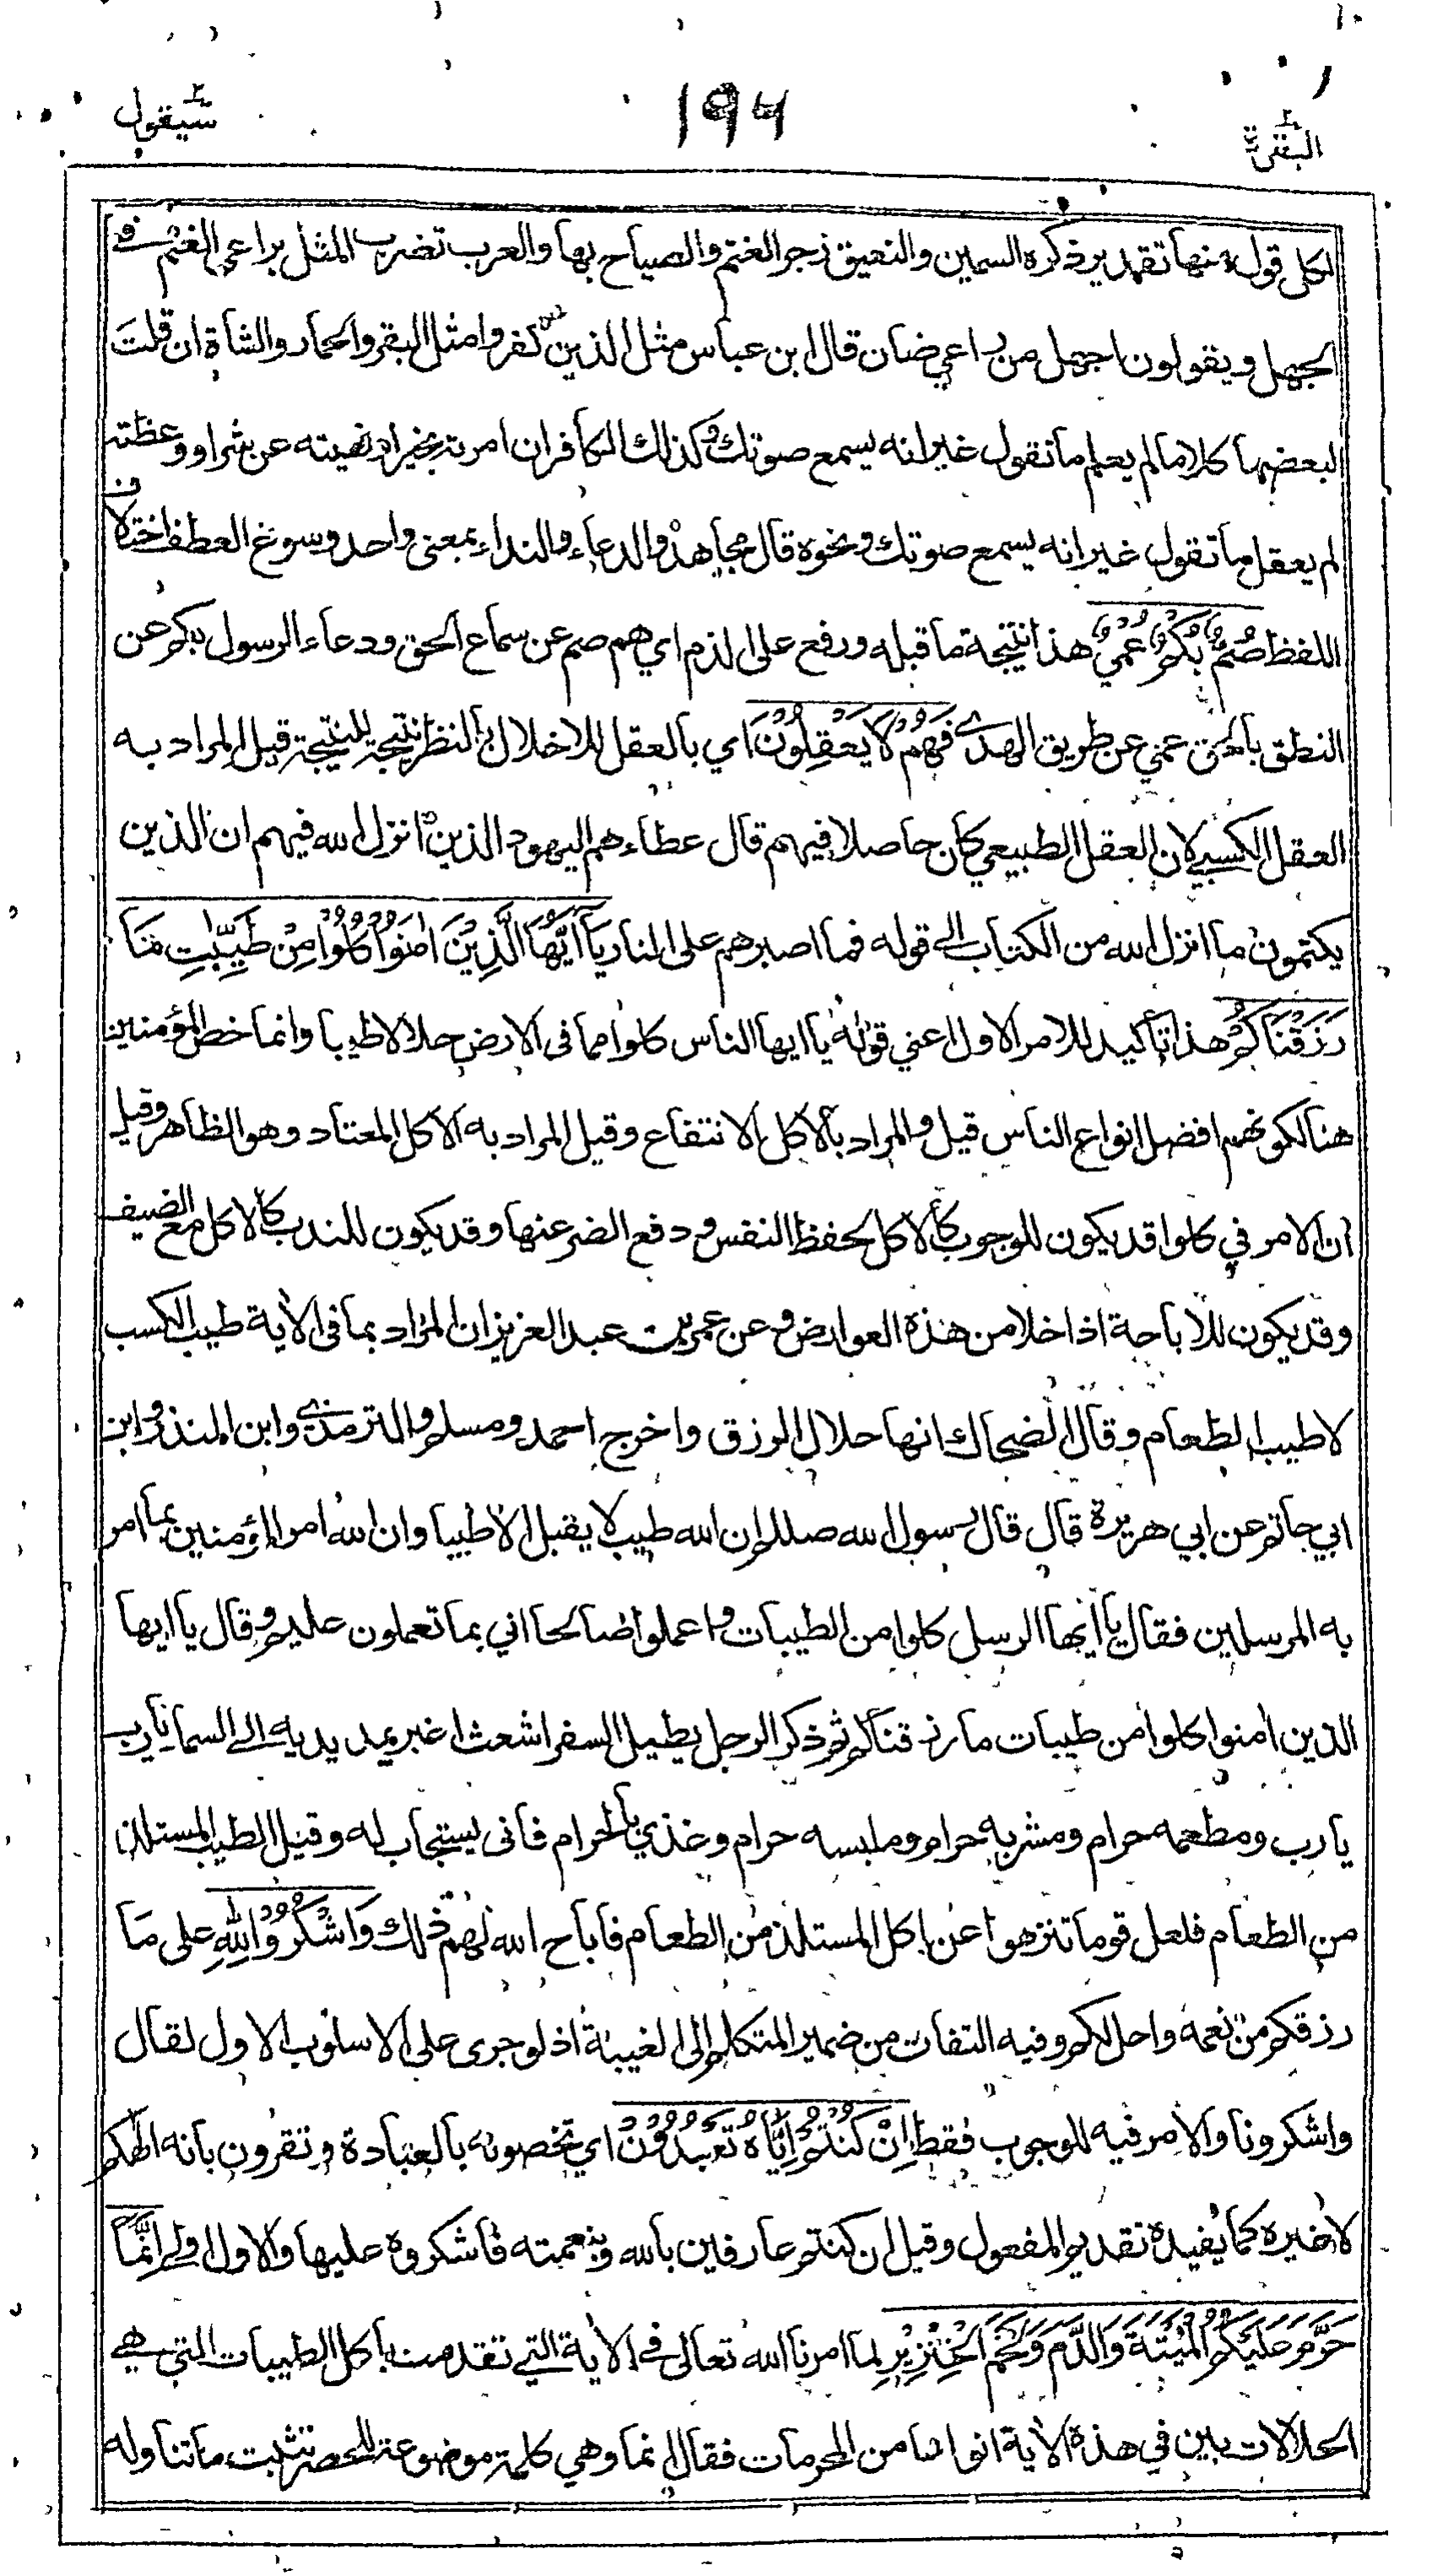 البقرة ٢
١٩٤
سيقول ٢
لكل قول منها تقدير ذكره السمين والنعيق زجر الغنم والصياح بها والعرب تضرب المثل براعي الغنم في
الجهل ويقولون اجهل من راعي ضان قال ابن عباس مثل الذين كفروا مثل البقر والحمار والشاة ان قلت
لبعضها كلاما لم يعلم ما تقول غير انه يسمع صوتك وكذلك الكافر ان امرته بخير او نهيته عن شر او وعظته
لم يعقل ما تقول غير انه يسمع صوتك ونحوه قال مجاهد والدعاء والنداء بمعنى واحد وسوغ العطف اختلاف
اللفظ صُمٌّ بُكْمٌ عُمْيٌ هذا نتيجة ما قبله ورفع على الذم اي هم صم عن سماع الحق ودعاء الرسول بكم عن
النطق بالحق عمي عن طريق الهدى فَهُمْ لَا يَعْقِلُوْنَ اي بالعقل للاخلال بالنظر نتيجة للنتيجة قيل المراد به
العقل الكسبي لان العقل الطبيعي كان حاصلا فيهم قال عطاء هم اليهود الذين انزل الله فيهم ان الذين
يكتمون ما انزل الله من الكتاب الى قوله فما اصبرهم على النار يَآ اَيُّهَا الَّذِيْنَ اٰمَنُوْا كُلُوْا مِنْ طَيِّبٰتِ مَا
رَزَقْنَاكُمْ هذا تأكيد للامر الاول اعني قوله يا ايها الناس كلوا مما في الارض حلالا طيبا وانما خص المؤمنين
هنا لكونهم افضل انواع الناس قيل والمراد بالاكل الانتفاع وقيل المراد به الاكل المعتاد وهو الظاهر وقيل
ان الامر في كلوا قد يكون للوجوب كالاكل لحفظ النفس ودفع الضر عنها وقد يكون للندب كالاكل مع الضيف
وقد يكون للاباحة اذا خلا من هذه العوارض وعن عمر بن عبد العزيز ان المراد بما في الاية طيب الكسب
لا طيب الطعام وقال الضحاك انها حلال الرزق واخرج احمد ومسلم والترمذي وابن المنذر وابن
ابي حاتم عن ابي هريرة قال قال رسول الله صللم ان الله طيب لا يقبل الا طيبا وان الله امر المؤمنين بما امر
به المرسلين فقال يا ايها الرسل كلوا من الطيبات واعملوا صالحا اني بما تعملون عليم وقال يا ايها
الذين امنوا كلوا من طيبات ما رزقناكم ثم ذكر الرجل يطيل السفر اشعث اغبر يمد يديه الى السما يا رب
يا رب ومطعمه حرام ومشربه حرام وملبسه حرام وغذي بالحرام فانى يستجاب له وقيل الطيب المستلذ
من الطعام فلعل قوما تنزهوا عن اكل المستلذ من الطعام فاباح الله لهم ذلك وَاشْكُرُوْا لِلّٰهِ على ما
رزقكم من نعمه واحل لكم وفيه التفات من ضمير المتكلم الى الغيبة اذ لو جرى على الاسلوب الاول لقال
واشكرونا والامر فيه للوجوب فقط اِنْ كُنْتُمْ اِيَّاهُ تَعْبُدُوْنَ اي تخصونه بالعبادة وتقرون بانه الهكم
لا غيره كما يفيده تقديم المفعول وقيل ان كنتم عارفين بالله وبنعمته فاشكروه عليها والاول اولى اِنَّمَا
حَرَّمَ عَلَيْكُمُ الْمَيْتَةَ وَالدَّمَ وَلَحْمَ الْخِنْزِيْرِ لما امرنا الله تعالى في الاية التي تقدمت باكل الطيبات التي هي
الحلالات بين في هذه الاية انواعا من المحرمات فقال انما وهي كلمة موضوعة للحصر تثبت ما تناوله